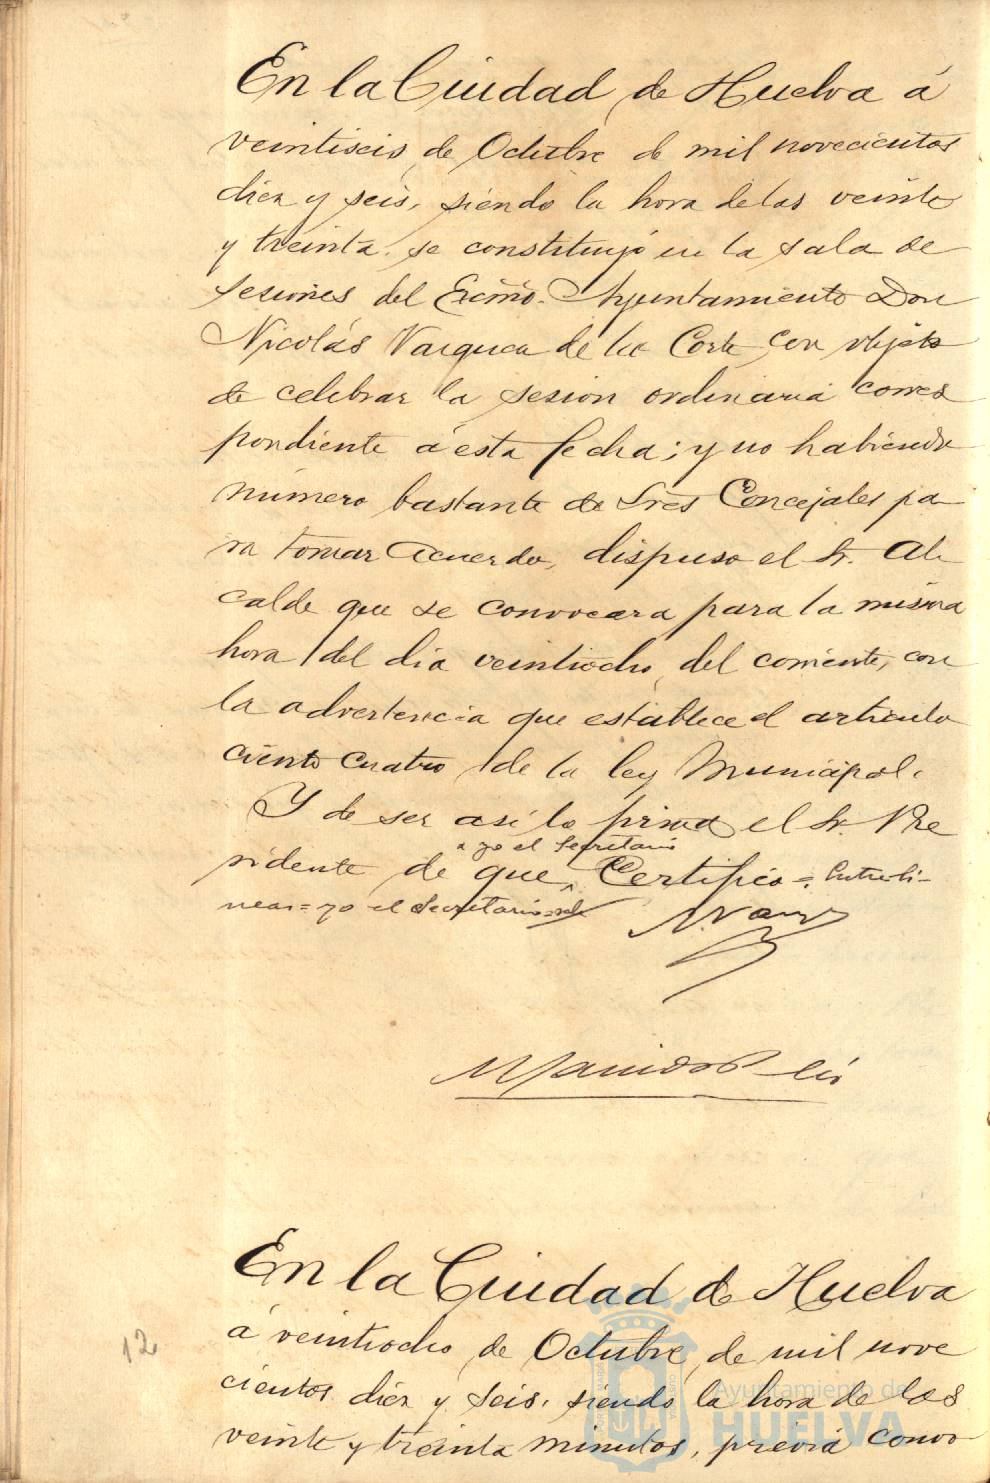 En la Ciudad de Huelva á
veintiseis de Octubre de mil novecientos
diez y seis, siendo la hora de las veinte
y treinta, se constituyó en la sala de
sesiones del Excmo. Ayuntamiento Don
Nicolás Vazquez de la Corte con objeto
de celebrar la sesion ordinaria corres
pondiente á esta fecha; y no habiendo
número bastante de Sres Concejales pa
ra tomar acuerdo, dispuso el Sr. Al
calde que se convocara para la misma
hora del dia veintiocho del corriente, con
la advertencia que establece el articulo
ciento cuatro de la ley Municipal.
Y de ser asi lo firma el Sr. Pre
yo el Secretario
sidente de que Certifico =. Entreli-
neas = yo el Secretario = vale
N. Vazqz
12
En la Ciudad de Huelva
á veintiocho de Octubre de mil nove
cientos diez y seis, siendo la hora de las
veinte y treinta minutos, previa convo
Ayuntamiento de
HUELVA